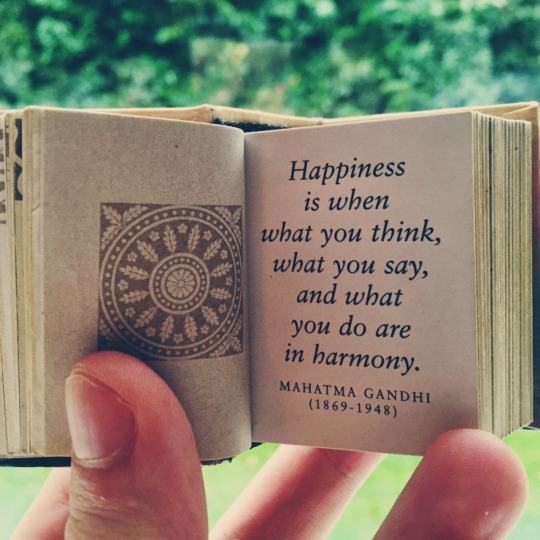 Happiness
is when
what you think,
what you say,
and what
you do are
in harmony.
MAHATMA GANDHI
(1869-1948)